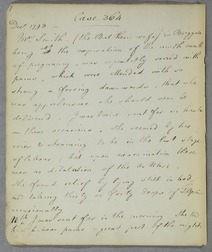 Case 364
Dec 1793
Mrs Smith (the Bathmans wife) in Bruggate
being at the expiration of the ninth month
of pregnancy, was repeatedly seized with
pains, which were attended with so
strong a forcing downwards, that she
was apprehensive she should soon be
delivered. I was twice sent for in haste
on these occasions. She seemed by her
to be in the last stage
of labour, but upon examination there
was no dilatation of the os uteri.
She found relief by lying still in bed
and taking thirty or forty drops of
occasionally.
I was sent for in the morning. She
had pains a great part of the night,